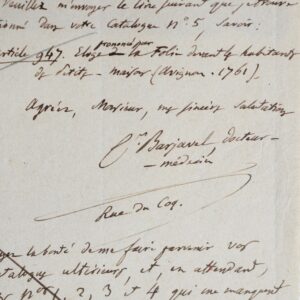 Veuillez m'envoyer le livre suivant que je trouve
dans votre Catalogue N° 5, savoir:
article 947. Eloge prononcé par la Folie devant les habitants
des Petites-maisons (Avignon. 1761).
Agréez, Monsieur, mes sincères salutations
Barjavel, docteur-
-médecin
Rue du Coq.
la bonté de me faire parvenir vos
catalogues ultérieurs, et, en attendant,
les nos 1, 2, 3 et 4 qui me manquent